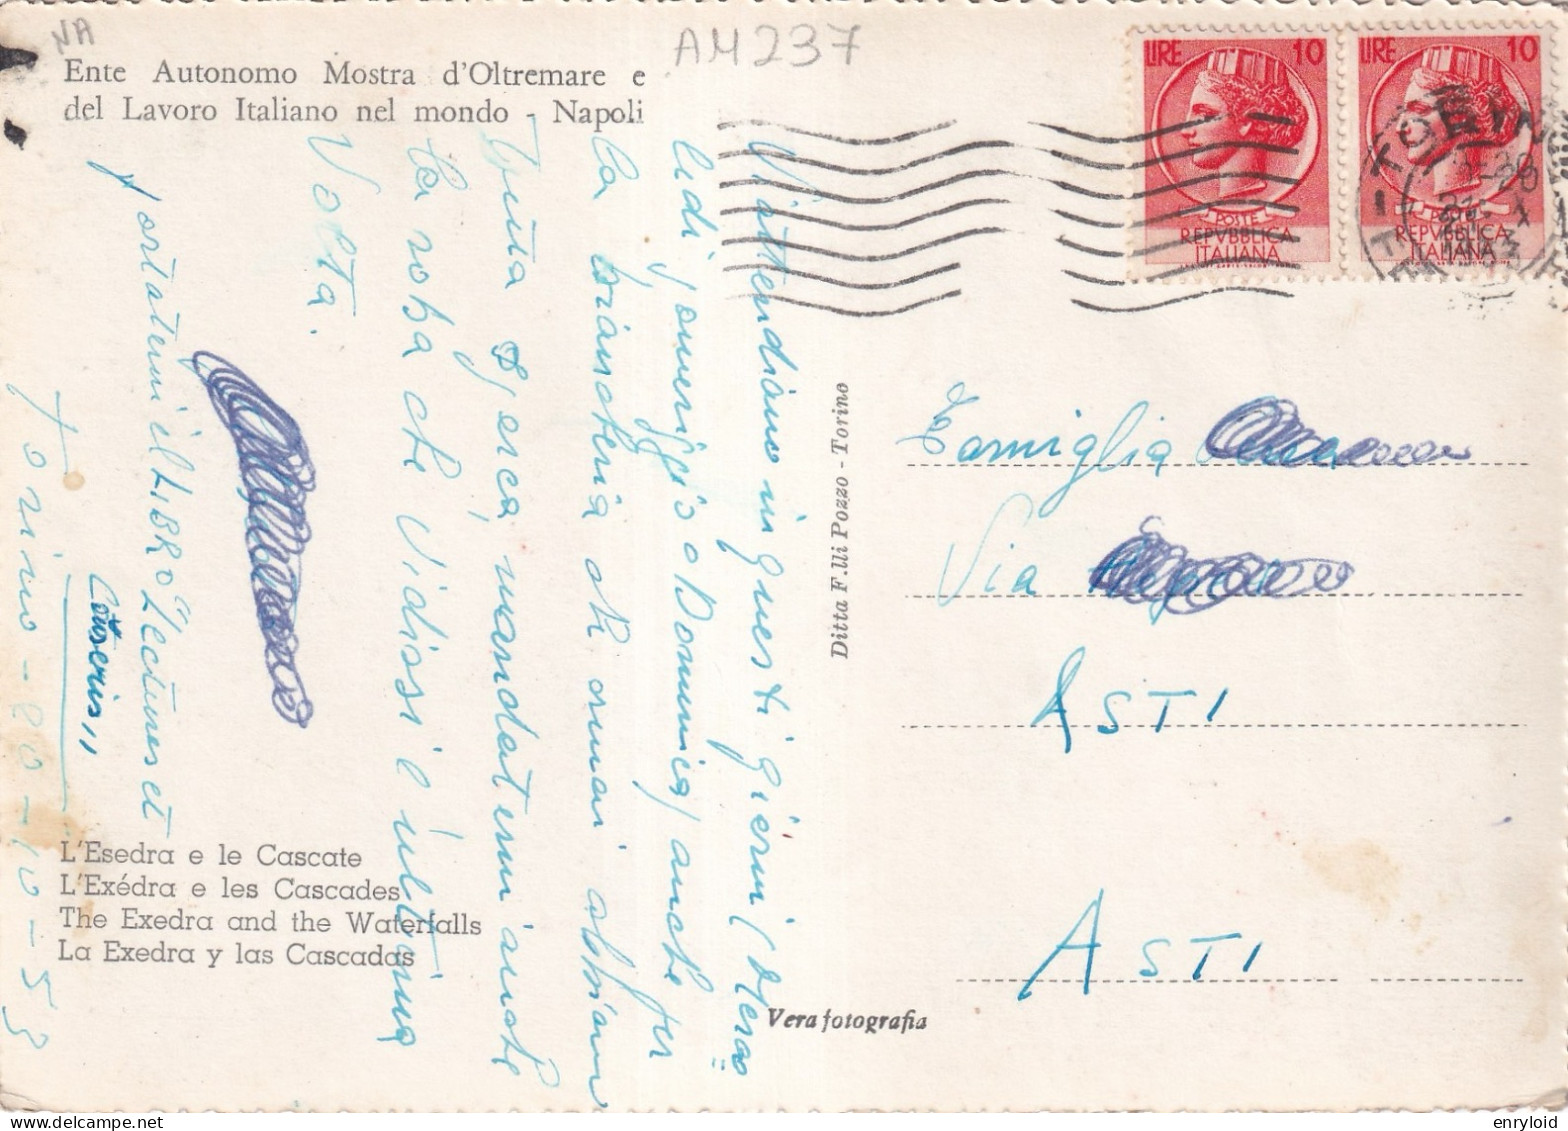 NA
AM237
Ente Autonomo Mostra d'Oltremare e
del Lavoro Italiano nel mondo - Napoli
LIRE 10
POSTE
REPVBBLICA
ITALIANA
LIRE 10
POSTE
REPVBBLICA
ITALIANA
V'attendiamo in questi giorni
lidi pomeriggio o Domenica anche per
la biancheria che ormai abbiamo
finita & perciò mandatemi anche
la roba che vi dissi l'ultima
Volta.
portatemi il LIBRO
Torino - 20 - 10 - 53
Famiglia
Via
ASTI
ASTI
Ditta F.lli Pozzo - Torino
L'Esedra e le Cascate
L'Exédra e les Cascades
The Exedra and the Waterfalls
La Exedra y las Cascadas
Vera fotografia
delcampe.net
enryloid